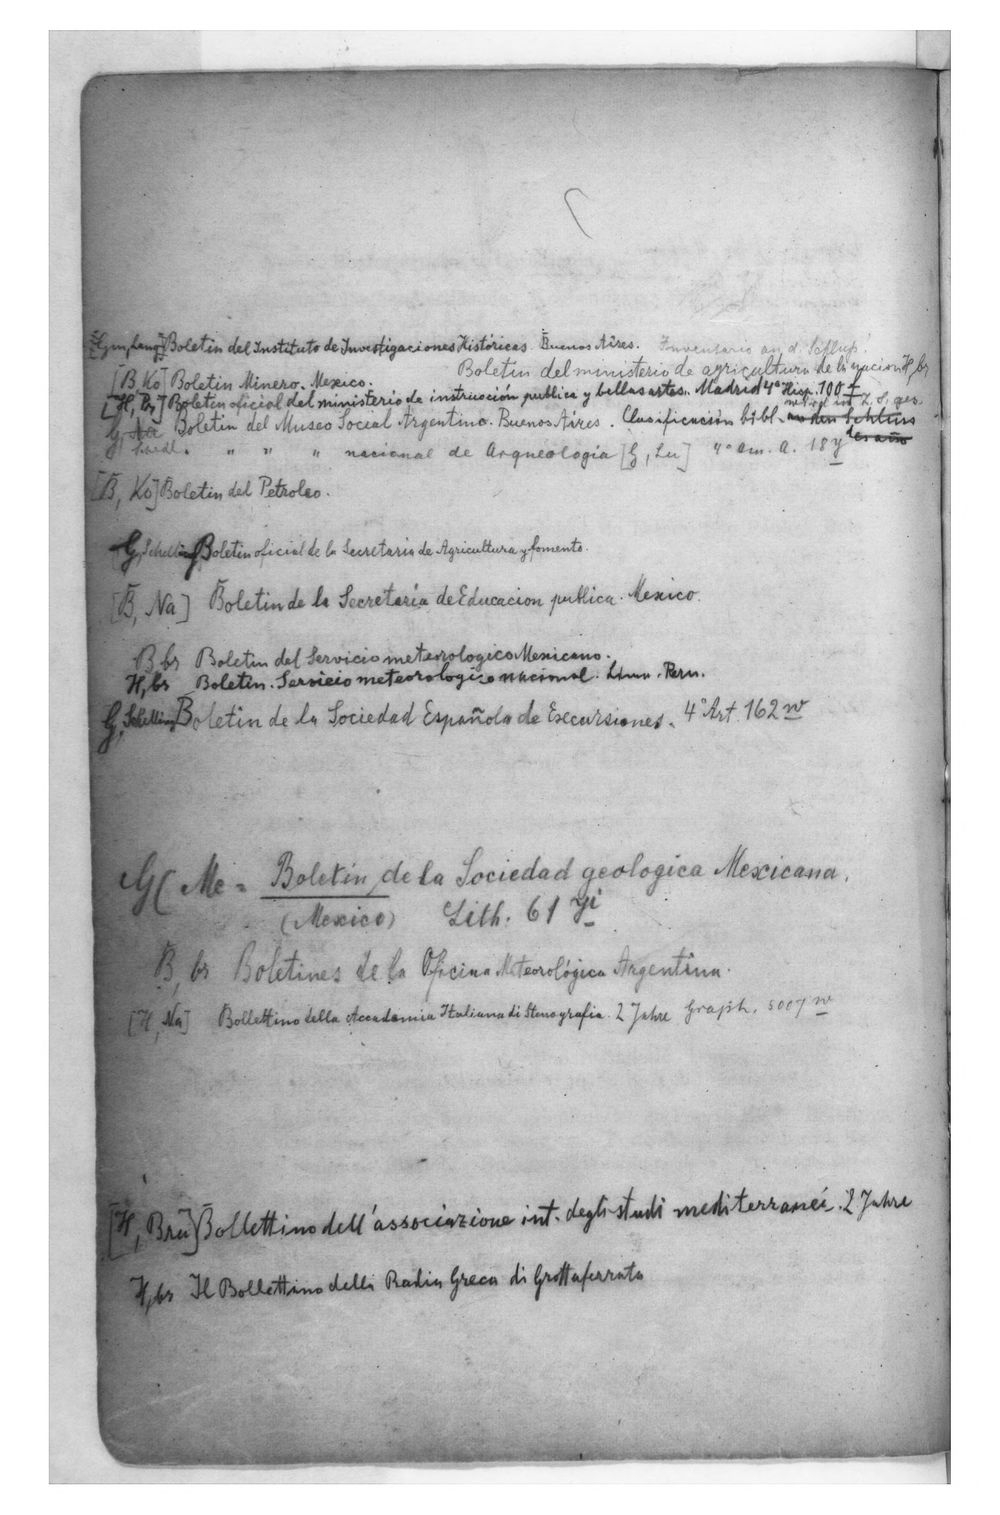 Boletin del Instituto de Investigaciones Históricas. Buenos Aires. Inventario an d.
Boletin del ministerio de agricultura de la nacion H, br
[B, Ko] Boletin Minero. Mexico.
[H, Br] Boletin oficial del ministerio de instrucción publica y bellas artes. Madrid 4° Hisp. 100
G Boletin del Museo Social Argentino. Buenos Aires. Clasificación bibl. an den Schluss
" " " nacional de Arqueologia [G, Lu] 4° Am. A. 18 y
[B, Ko] Boletin del Petroleo.
G, Schelling Boletin oficial de la Secretaria de Agricultura y fomento.
[B, Na] Boletin de la Secretaría de Educacion publica. Mexico.
B br Boletin del Servicio meteorologico Mexicano.
H, br Boletin. Servicio meteorologico nacional. Lima. Peru.
G, Schelling Boletin de la Sociedad Española de Excursiones. 4° Art. 162 w
G( Me = Boletín de la Sociedad geologica Mexicana.
(Mexico) Lith. 61 yi
B, br Boletines de la Oficina Meteorológica Argentina.
[H, Na] Bollettino della Accademia Italiana di Stenografia. 2 Jahre Graph. 5007 w
[H, Brü] Bollettino dell'associazione int. degli studi mediterranei. 2 Jahre
H, br Il Bollettino della Badia Greca di Grottaferrata